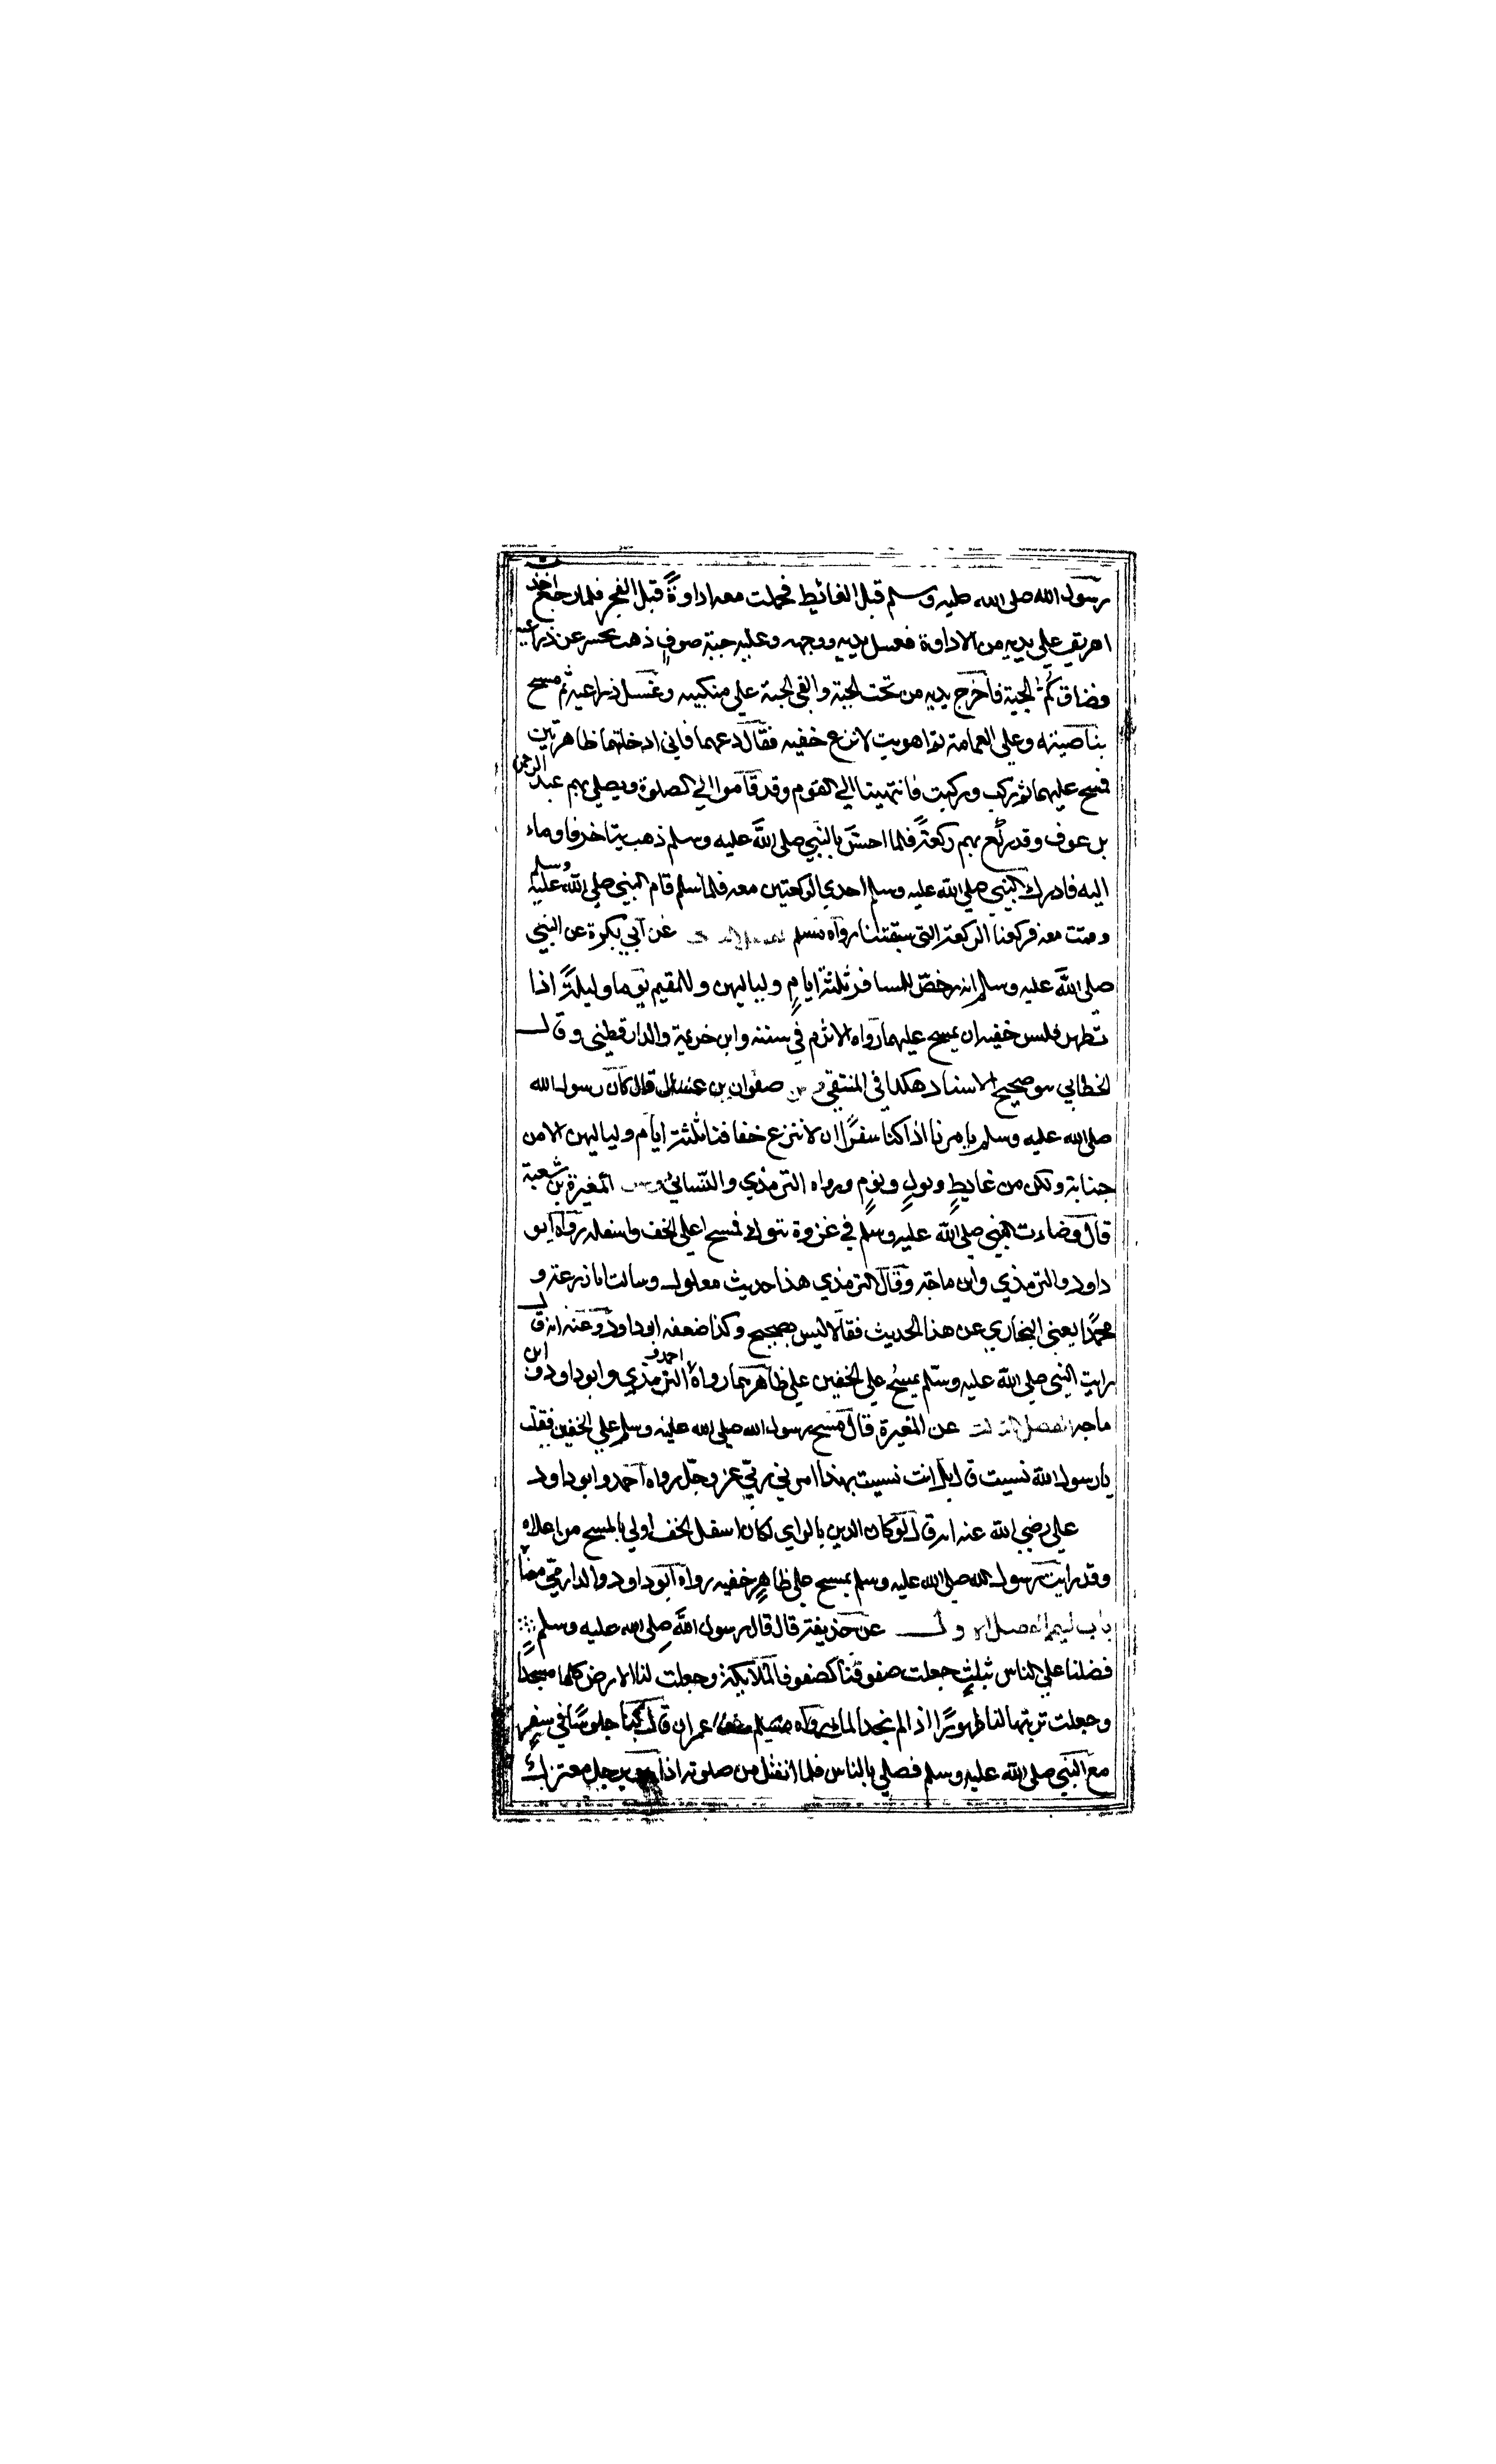 رسول الله صلى الله عليه وسلم قبل الغائيط فحملت معه اداوةً قبل الفجر فلما رجع اخذت
اهريق علي يديه من الاداوة فغسل يديه ووجهه وعليه جبة صوفٍ ذهب يحسر عن ذراعيه
فضاق كُمُّ الجبة فاخرج يديه من تحت الجبة والقى الجبة علي منكبيه وغسل ذراعيه ثم مسح
بناصيته وعلي العمامة ثم اهويت لانزع خفيه فقال دعهما فاني ادخلتهما طاهرتين
فمسح عليهما ثم ركب وركبت فانتهينا الي القوم وقد قاموا الي الصلوة ويصلي بهم عبد الرحمن
بن عوف وقد ركع بهم ركعةً فلما احسّ بالنبي صلى الله عليه وسلم ذهب يتاخر فاوماء
اليه فادرك النبي صلى الله عليه وسلم احدي الركعتين معه فلما سلم قام النبي صلى الله عليه وسلم
وقمت معه فركعنا الركعة التي سبقتنا رواه مسلم عن ابي بكرة عن النبي
صلى الله عليه وسلم انه رخّص للمسافر ثلثة ايامٍ ولياليهن وللمقيم يوما وليلةً اذا
تطهر فلبس خفيه ان يمسح عليهما رواه الاثرم في سننه وابن خزيمة والدارقطني وقال
الخطابي هو صحيح الاسناد هكذا في المنتقى عن صفوان بن عسال قال كان رسول الله
صلى الله عليه وسلم يامرنا اذا كنا سفرًا ان لا ننزع خفافنا ثلثة ايام ولياليهن الا من
جنابة ولكن من غايطٍ وبولٍ ونومٍ ورواه الترمذي والنسائي وعن المغيرة بن شعبة
قال وضاءت النبي صلى الله عليه وسلم في غزوة تبوك فمسح اعلي الخف واسفله رواه ابو
داود والترمذي وابن ماجة وقال الترمذي هذا حديث معلول وسالت ابا زرعة و
محمدًا يعني البخاري عن هذا الحديث فقالا ليس بصحيح وكذا ضعفه ابو داود وعنه انه قال
رايت النبي صلى الله عليه وسلم يمسح علي الخفين علي ظاهرهما رواه احمد و الترمذي وابو داود و ابن
ماجه الفصل الثالث عن المغيرة قال مسح رسول الله صلى الله عليه وسلم علي الخفين فقلت
يا رسول الله نسيت قال بل انت نسيت بهذا امرني ربّي عز وجلّ رواه احمد وابو داود
علي رضي الله عنه انه قال لو كان الدين بالراي لكان اسفل الخف اولي بالمسح من اعلاه
وقد رايت رسول الله صلى الله عليه وسلم يمسح علي ظاهر خفيه رواه ابو داود والدارمي
باب التيمم الفصل الاول عن حذيفة قال قال رسول الله صلى الله عليه وسلم
فضلنا علي الناس بثلثٍ جعلت صفوفنا كصفوف الملائكة وجعلت لنا الارض كلها مسجدًا
وجعلت تربتها لنا طهورًا اذا لم نجد الماء رواه مسلم عمران قال كنا جلوسًا في سفر
مع النبي صلى الله عليه وسلم فصلي بالناس فلما انفتل من صلوته اذا هو برجل معتزلٍ